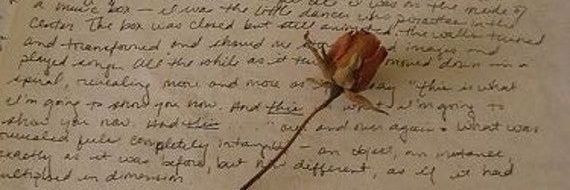 a music box – it was the little dancer who pirouettes in the
center. The box was closed but still animated, the walls turned
and transformed and showed me images and
played songs. All the while as it moved down in a
spiral, revealing more and more as say "this is what
I'm going to show you now. And this what I'm going to
show you now. And this over and over again. What was
revealed felt completely intangible – an object, an instance,
exactly as it was before, but different, as if it had
multiplied in dimension